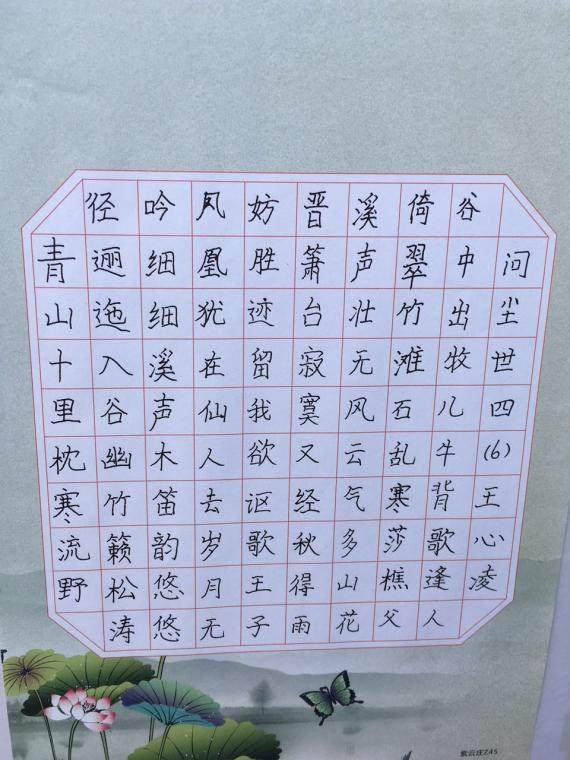 青山十里枕寒流野
径逦迤入谷幽竹籁松涛
吟细细溪声木笛韵悠悠
凤凰犹在仙人去岁月无
妨胜迹留我欲讴歌王子
晋箫台寂寞又经秋得雨
溪声壮无风云气多山花
倚翠竹滩石乱寒莎樵父
谷中出牧儿牛背歌逢人
问尘世四(6)王心凌